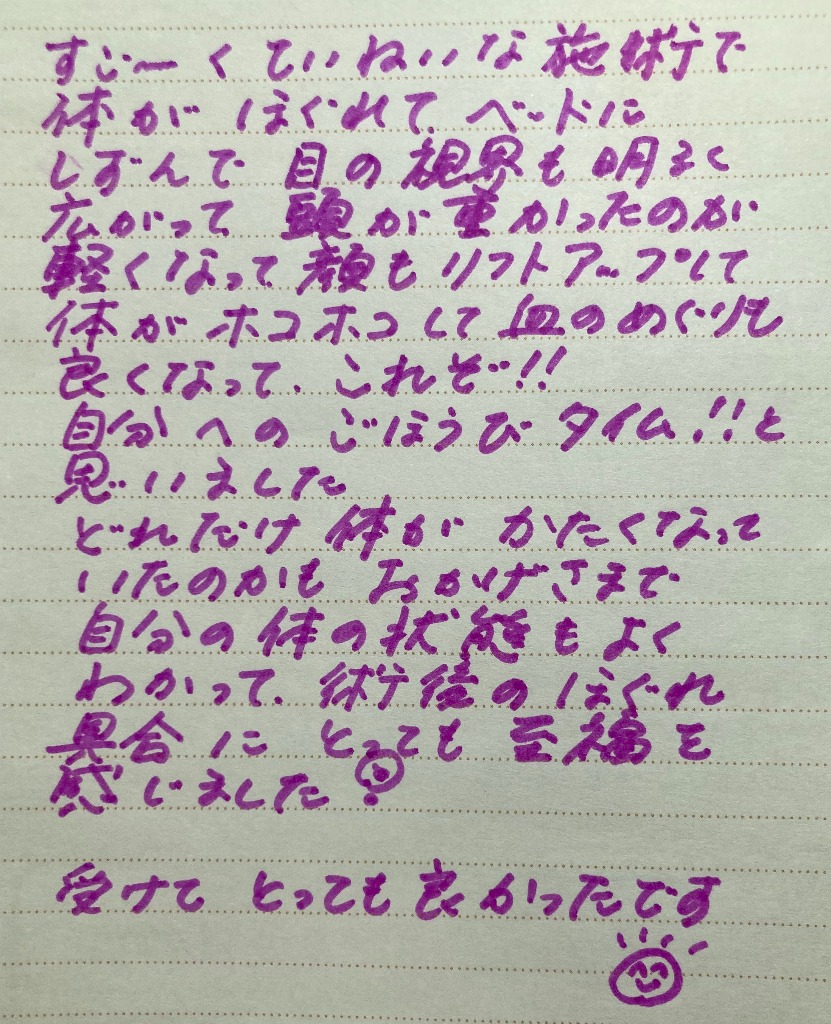 すご〜くていねいな施術で
体がほぐれて、ベッドに
しずんで目の視界も明るく
広がって頭が重かったのが
軽くなって顔もリフトアップして
体がホコホコして血のめぐりも
良くなって、これぞ!!
自分へのごほうびタイム!!と
思いました
どれだけ体がかたくなって
いたのかもおかげさまで
自分の体の状態もよく
わかって、術後のほぐれ
具合にとっても至福を
感じました
受けてとっても良かったです